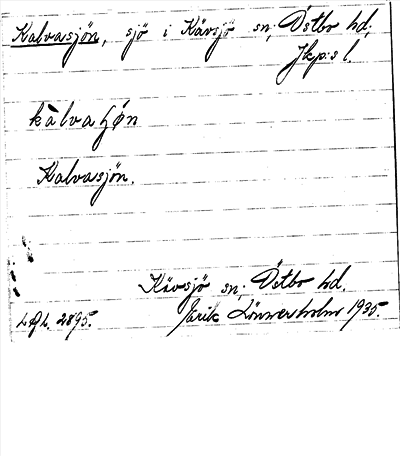 Kalvasjön, sjö i Kävsjö sn; Östbo hd;
Jkp:s l.
kàlvaʃøn
Kalvasjön.
Kävsjö sn; Östbo hd.
L.A.L. 2895. Erik Lönnerholm 1935.